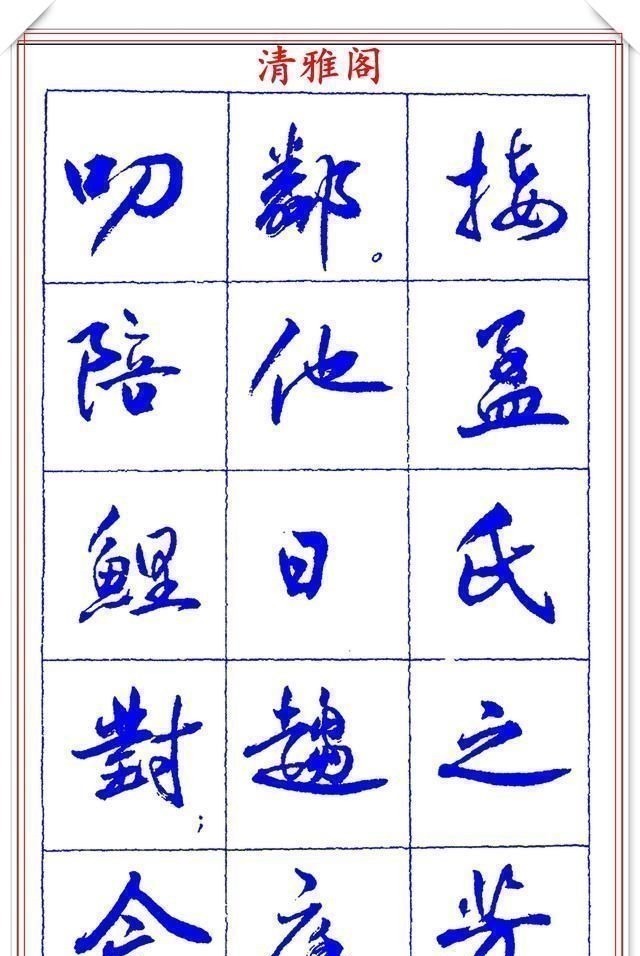 清雅阁
接孟氏之芳
鄰。他日趨庭
叨陪鯉對；今